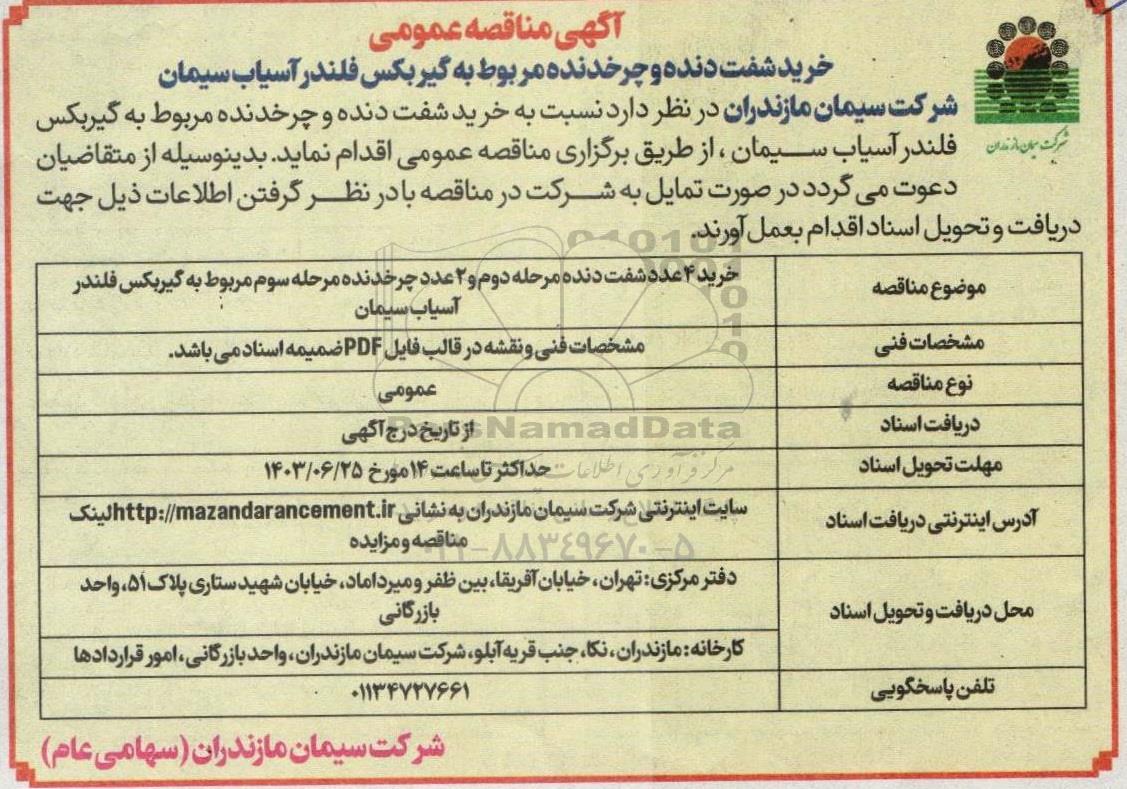 آگهی مناقصه عمومی
خرید شفت دنده و چرخدنده مربوط به گیربکس فلندر آسیاب سیمان
شرکت سیمان مازندران در نظر دارد نسبت به خرید شفت دنده و چرخدنده مربوط به گیربکس
فلندر آسیاب سیمان ، از طریق برگزاری مناقصه عمومی اقدام نماید. بدینوسیله از متقاضیان
دعوت می گردد در صورت تمایل به شرکت در مناقصه با در نظر گرفتن اطلاعات ذیل جهت
دریافت و تحویل اسناد اقدام بعمل آورند.
شرکت سیمان مازندران
موضوع مناقصه
خرید ۴ عدد شفت دنده مرحله دوم و ۲ عدد چرخدنده مرحله سوم مربوط به گیربکس فلندر
آسیاب سیمان
مشخصات فنی
مشخصات فنی و نقشه در قالب فایل PDF ضمیمه اسناد می باشد.
نوع مناقصه
عمومی
دریافت اسناد
از تاریخ درج آگهی
مهلت تحویل اسناد
حداکثر تا ساعت ۱۴ مورخ ۱۴۰۳/۰۶/۲۵
آدرس اینترنتی دریافت اسناد
سایت اینترنتی شرکت سیمان مازندران به نشانی http://mazandarancement.ir لینک
مناقصه و مزایده
محل دریافت و تحویل اسناد
دفتر مرکزی: تهران، خیابان آفریقا، بین ظفر و میرداماد، خیابان شهید ستاری پلاک ۵۱، واحد
بازرگانی
کارخانه: مازندران، نکا، جنب قریه آبلو، شرکت سیمان مازندران، واحد بازرگانی، امور قراردادها
تلفن پاسخگویی
۰۱۱۳۴۷۲۷۶۶۱
شرکت سیمان مازندران (سهامی عام)
NamadData
۸۸۳۴۹۶۷۰-۵